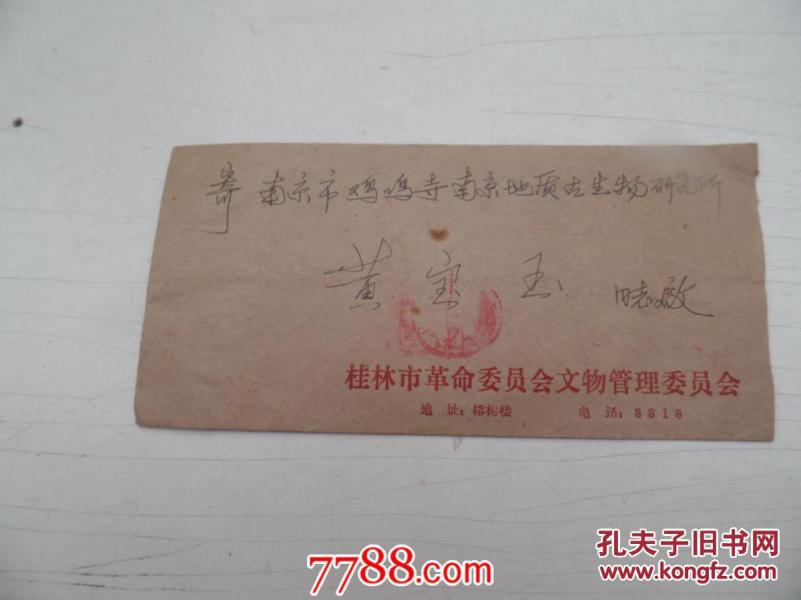 寄 南京市鸡鸣寺南京地质古生物研究所
黄宝玉 启
桂林市革命委员会文物管理委员会
地 址：榕树楼 电 话：3818
7788.com
孔夫子旧书网
www.kongfz.com